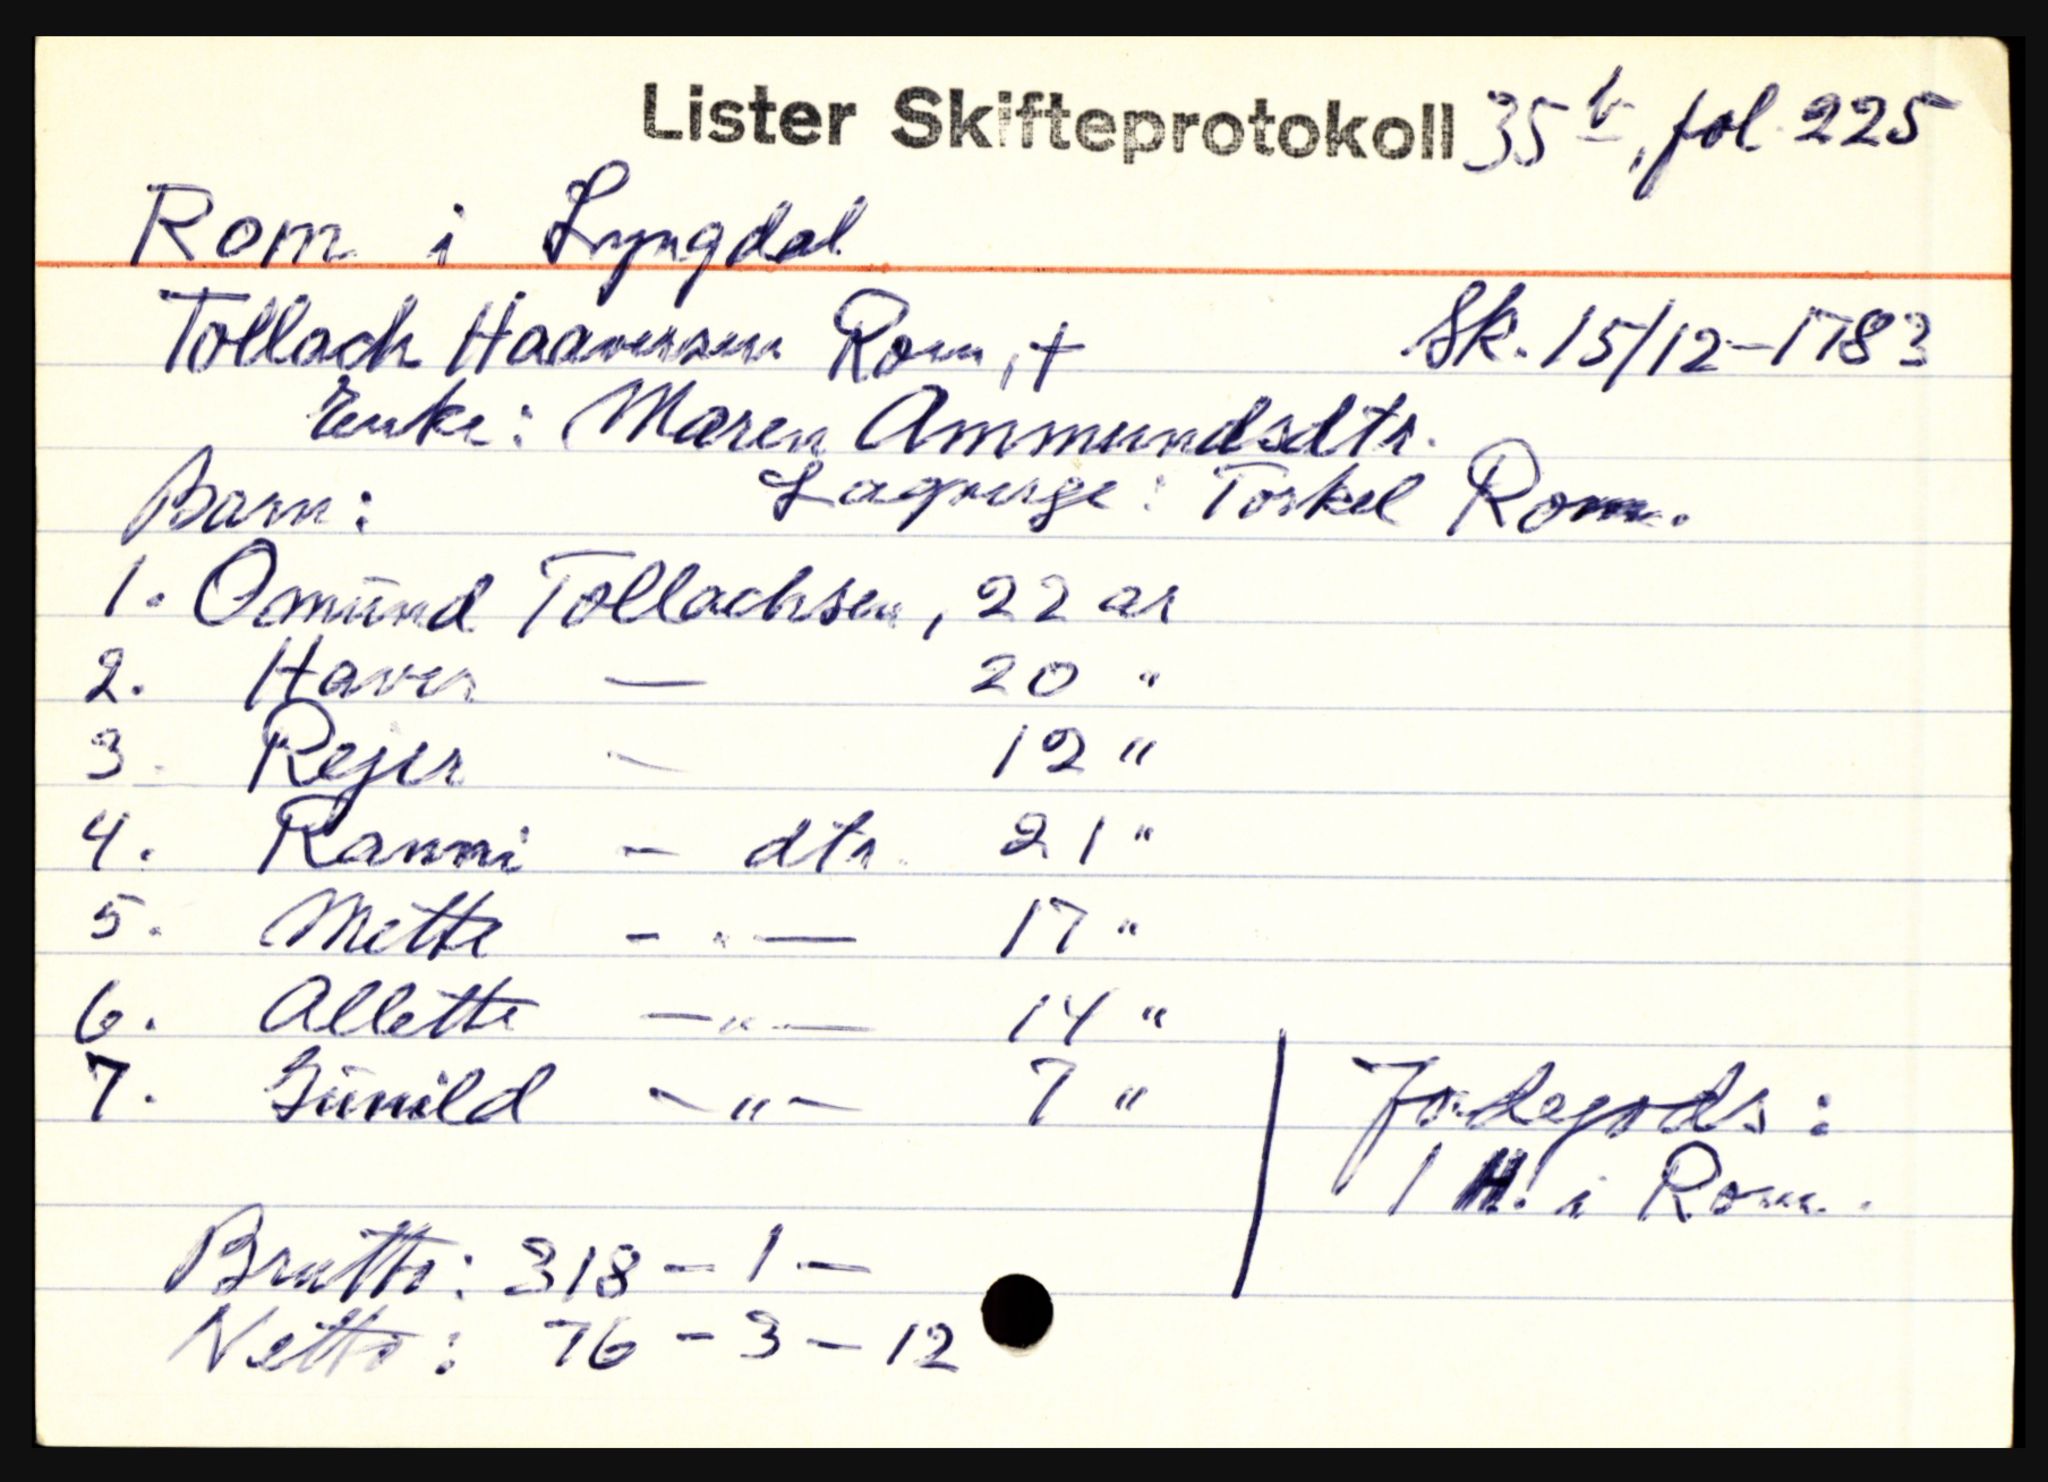 Lister Skifteprotokoll 35b, fol 225
Rom i Lyngdal
Tollach Haaversen Rom, + Sk. 15/12-1783
Enke: Maren Ammundsdtr.
Barn: Lagverge: Torkel Rom.
1. Osmund Tollachsen, 22 år
2. Haver — 20 "
3. Rejer — 12 "
4. Ranni — dtr. 21 "
5. Mette — " — 17 "
6. Allette — " — 14 "
7. Gunild — " — 7 "
Jordegods:
1 H. i Rom.
Brutto: 318 - 1 -
Netto: 76 - 3 - 12